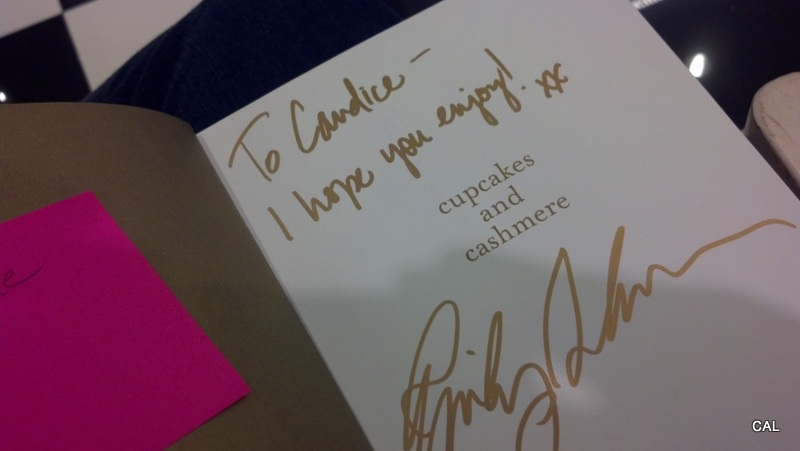 To Candice —
I hope you enjoy! xx
cupcakes
and
cashmere
Emily
e
CAL